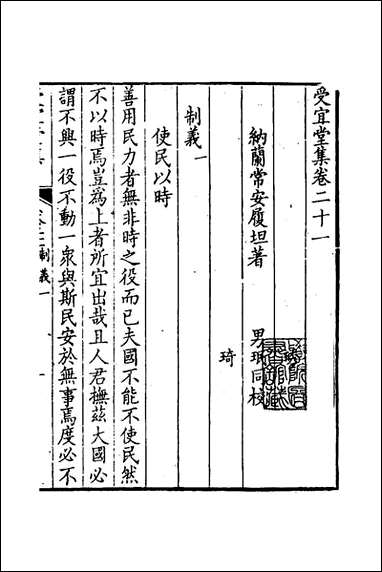 受宜堂集卷二十一
納蘭常安履坦著
男
同校
琦
制義一
使民以時
善用民力者無非時之役而已夫國不能不使民然
不以時焉豈為上者所宜出哉且人君撫茲大國必
謂不興一役不動一衆與斯民安於無事焉度必不
制義一